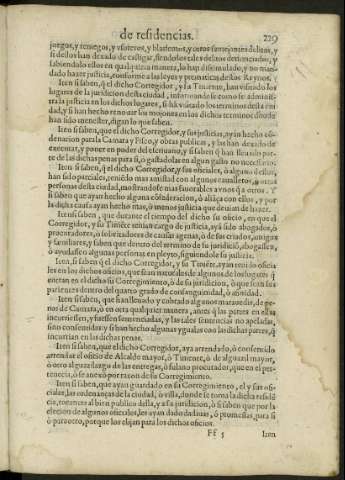 de residencias. 229
juegos, y reniegos, y vsureros, y blasfemos, y otros semejantes delitos, y
si dellos han dexado de castigar, siendoles tales delitos denunciados, y
sabiendolo ellos en qualquiera manera, lo han dissimulado, y no man-
dado hazer justicia, conforme a las leyes y prematicas destos Reynos.
Iten si saben, q̃ el dicho Corregidor, y su Teniente, han visitado los
lugares de la juridicion desta ciudad, informandose como se adminis-
tra la justicia en los dichos lugares, si hã visitado los terminos desta ciu-
dad, y si han hecho renouar los mojones en los dichos terminos dõde
han sido menester, digan lo que saben.
Iten si saben, que el dicho Corregidor, y sus justicias, ayan hecho cõ-
denacion para la Camara y Fisco, y obras publicas, y las han dexado de
executar, y poner en poder del receptor, y si saben q̃ han lleuado par-
te de las dichas penas para si, o gastadolas en algun gasto no necessario.
Iten si saben, q̃ el dicho Corregidor, y sus oficiales, o alguno dellos,
han sido parciales, teniẽdo mas amistad con algunos caualleros, o otras
personas desta ciudad, mostrandose mas fauorables a vnos q̃ a otros. Y
si saben que ayan hecho alguna cõfederacion, o aliãça con ellos, y por
la dicha causa ayan hecho mas, o menos justicia que deuian de hazer.
Iten si saben, que durante el tiempo del dicho su oficio, en que el
Corregidor, y su Tiniẽte tenian cargo de justicia, aya sido abogados, o
procuradores, o solicitadores de causas agenas, o de sus criados, amigos
y familiares, y saben que dentro del termino de su juridiciõ, abogassen,
o ayudassen a algunas personas en pleyto, siguiendole su justicia.
Iten si saben q̃ el dicho Corregidor, y su Tiniẽte, ayan tenido oficia
les en los dichos oficios, que sean naturales de algunos de los lugares q̃
entran en el dicho su Corregimiento, o de su juridicion, o que sean sus
parientes dentro del quarto grado de consanguinidad, o afinidad.
Iten si saben, que ayan lleuado y cobrado algunos marauedis, de pe-
nos de Camara, o en otra qualquier manera, antes q̃ las partes en ellas
incurriessen, y fuessen sentenciadas, y las tales sentencias no apeladas,
sino consentidas: y si han hecho algunas ygualas con las dichas partes, q̃
incurrian en las dichas penas.
Iten si saben, que el dicho Corregidor, aya arrendado, o consentido
arrendar el oficio de Alcalde mayor, o Tiniente, o de alguazil mayor,
o otro alguazilazgo de las entregas, o fulano procurador, que en el per-
tenencia, o se anexo por razon de su Corregimiento.
Iten si saben, que ayan guardado en su Corregimiento, el y sus ofi-
ciales, las ordenanças de la ciudad, o villa, donde se toma la dicha residẽ
cia, tocantes al bien publico della, y a su juridicion, o si saben que por la
eleccion de algunos oficiales, les ayan dado dadiuas, o promessas, para si
o para otro, porque los elijan para los dichos oficios.
Ff 5 Iten